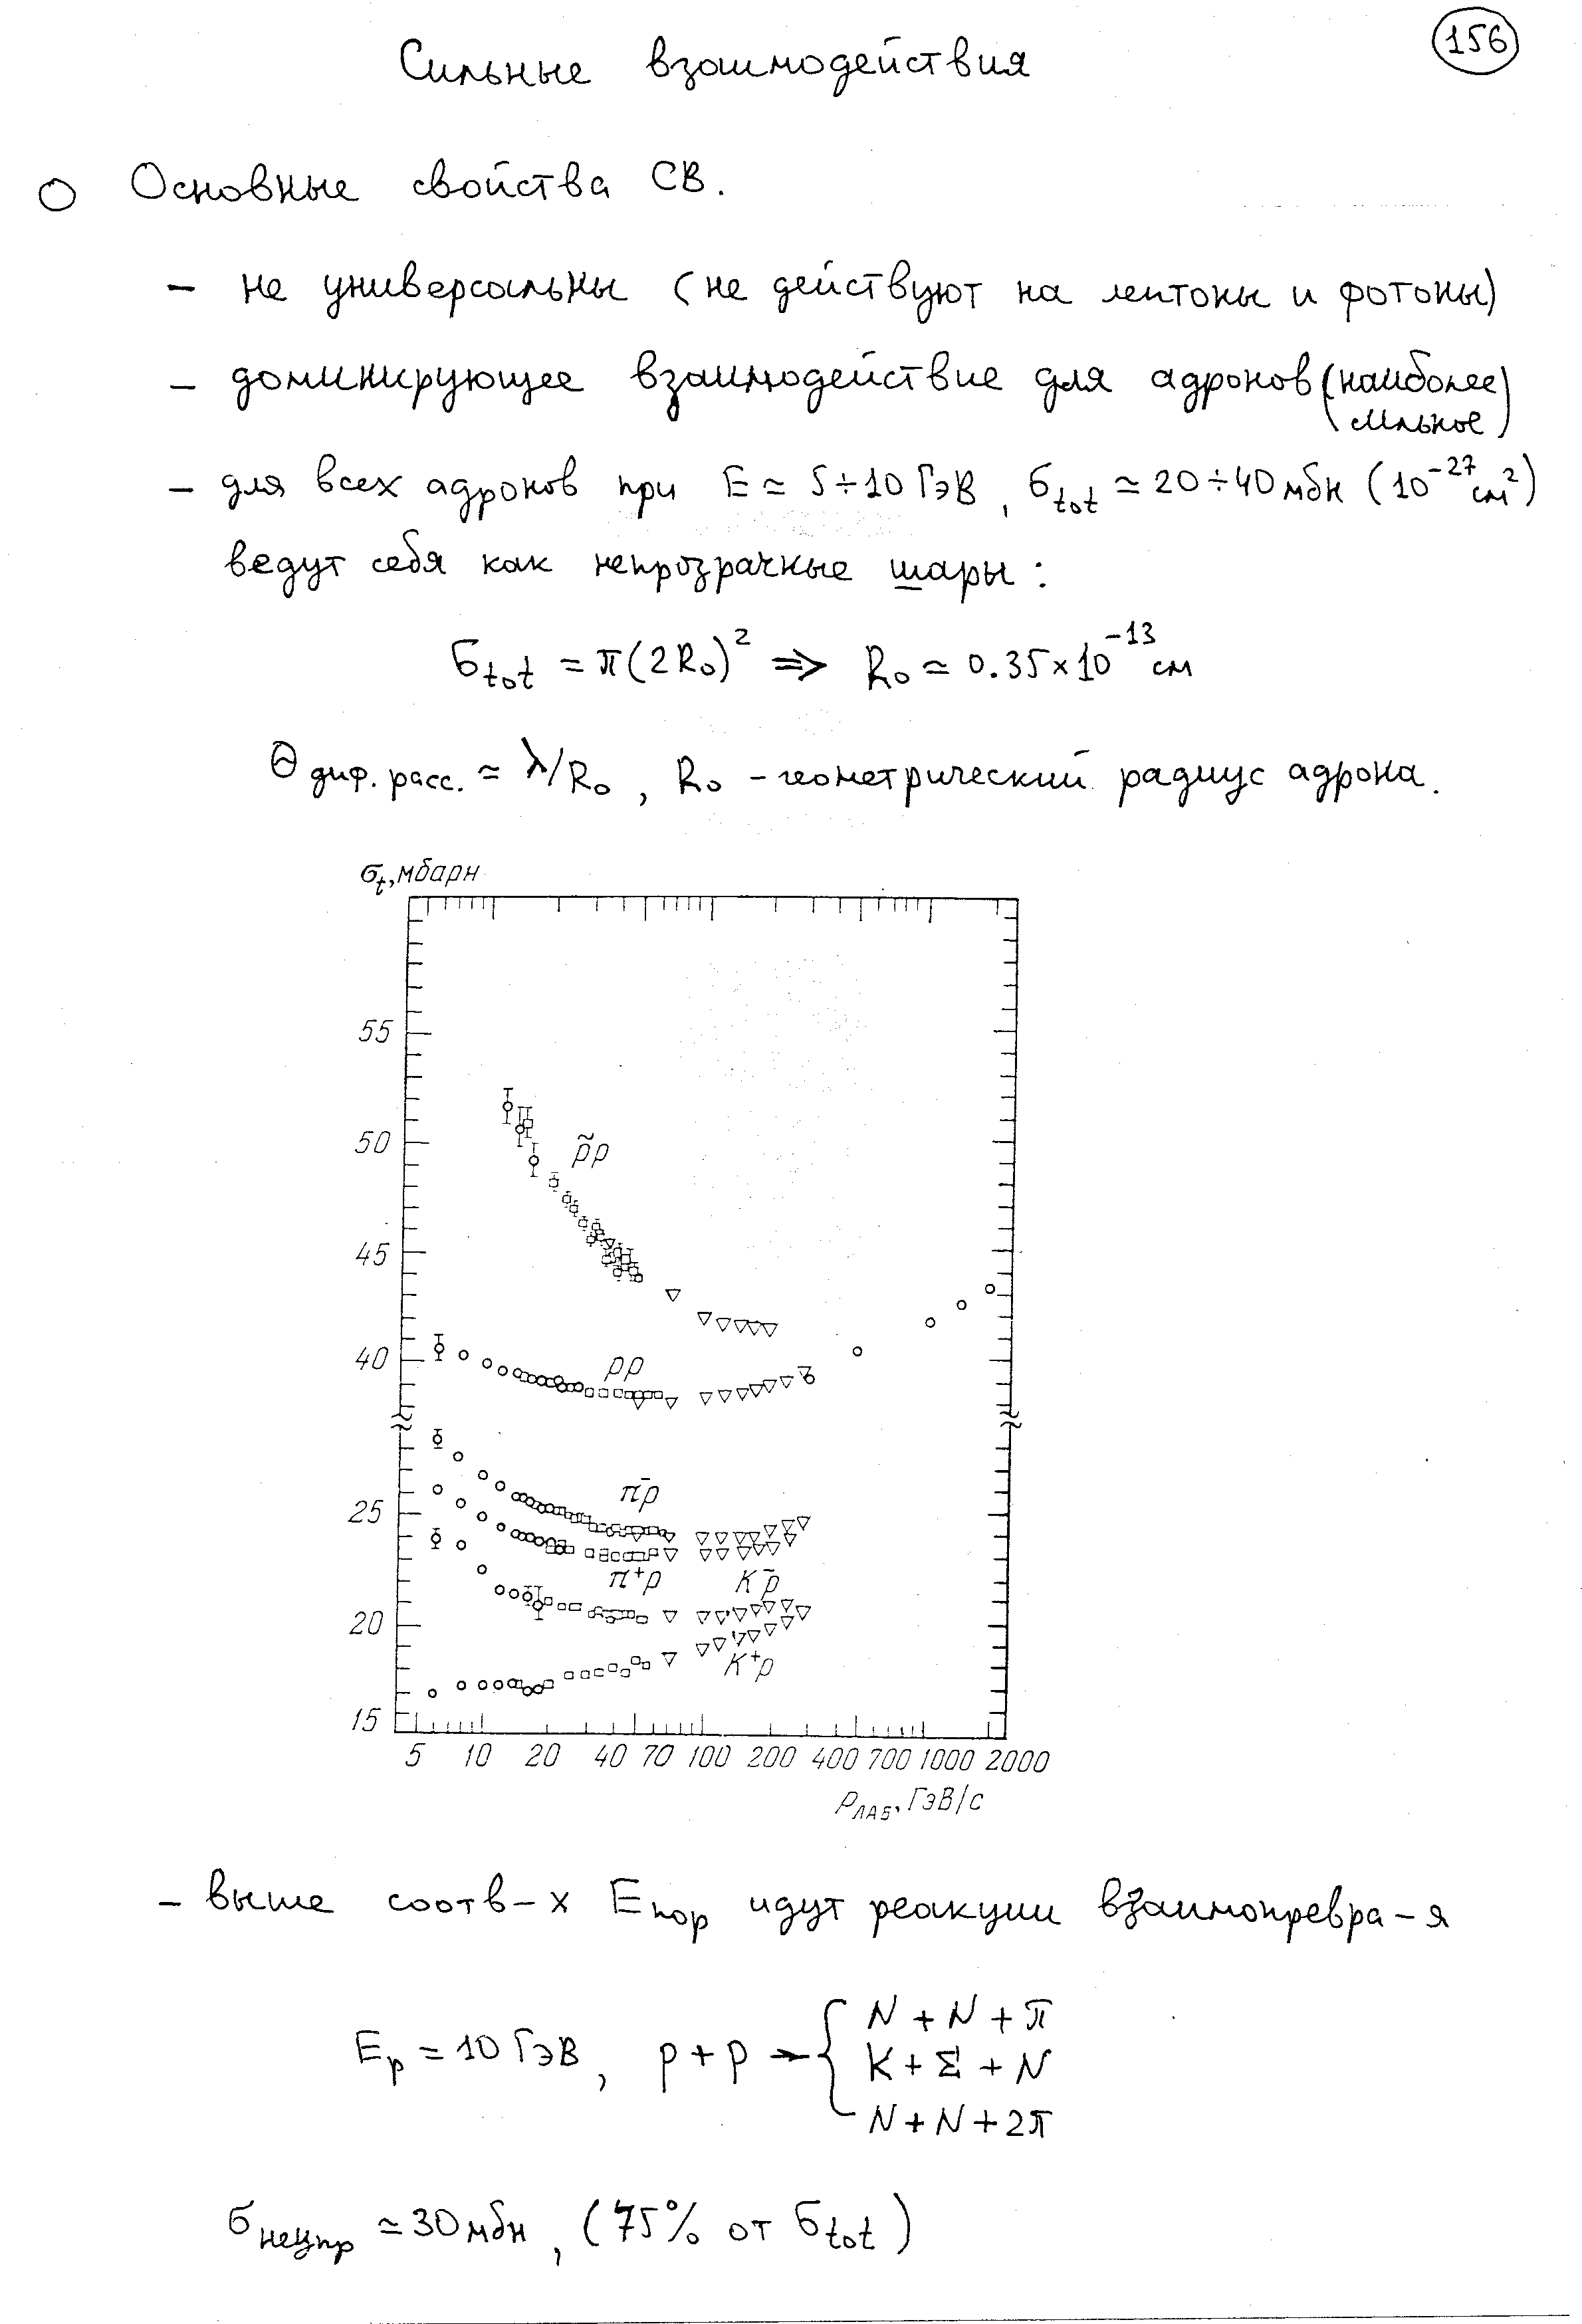 156
Сильные взаимодействия
○ Основные свойства СВ.
– не универсальны (не действуют на лептоны и фотоны)
– доминирующее взаимодействие для адронов (наиболее
сильное)
– для всех адронов при E ≃ 5÷10 ГэВ, σtot ≃ 20÷40 мбн (10⁻²⁷ см²)
ведут себя как непрозрачные шары:
σtot = π(2R₀)² ⇒ R₀ ≃ 0.35×10⁻¹³ см
Θдиф. расс. ≃ ƛ/R₀, R₀ – геометрический радиус адрона.
σt, мбарн
55
50
p̃p
45
40
pp
π⁻p
25
π⁺p K⁻p
20
K⁺p
15
5 10 20 40 70 100 200 400 700 1000 2000
PЛАБ, ГэВ/с
– выше соотв-х Eпор идут реакции взаимопревра-я
N + N + π
Ep = 10 ГэВ, p + p → { K + Σ + N
N + N + 2π
σнеупр ≃ 30 мбн, (75% от σtot)